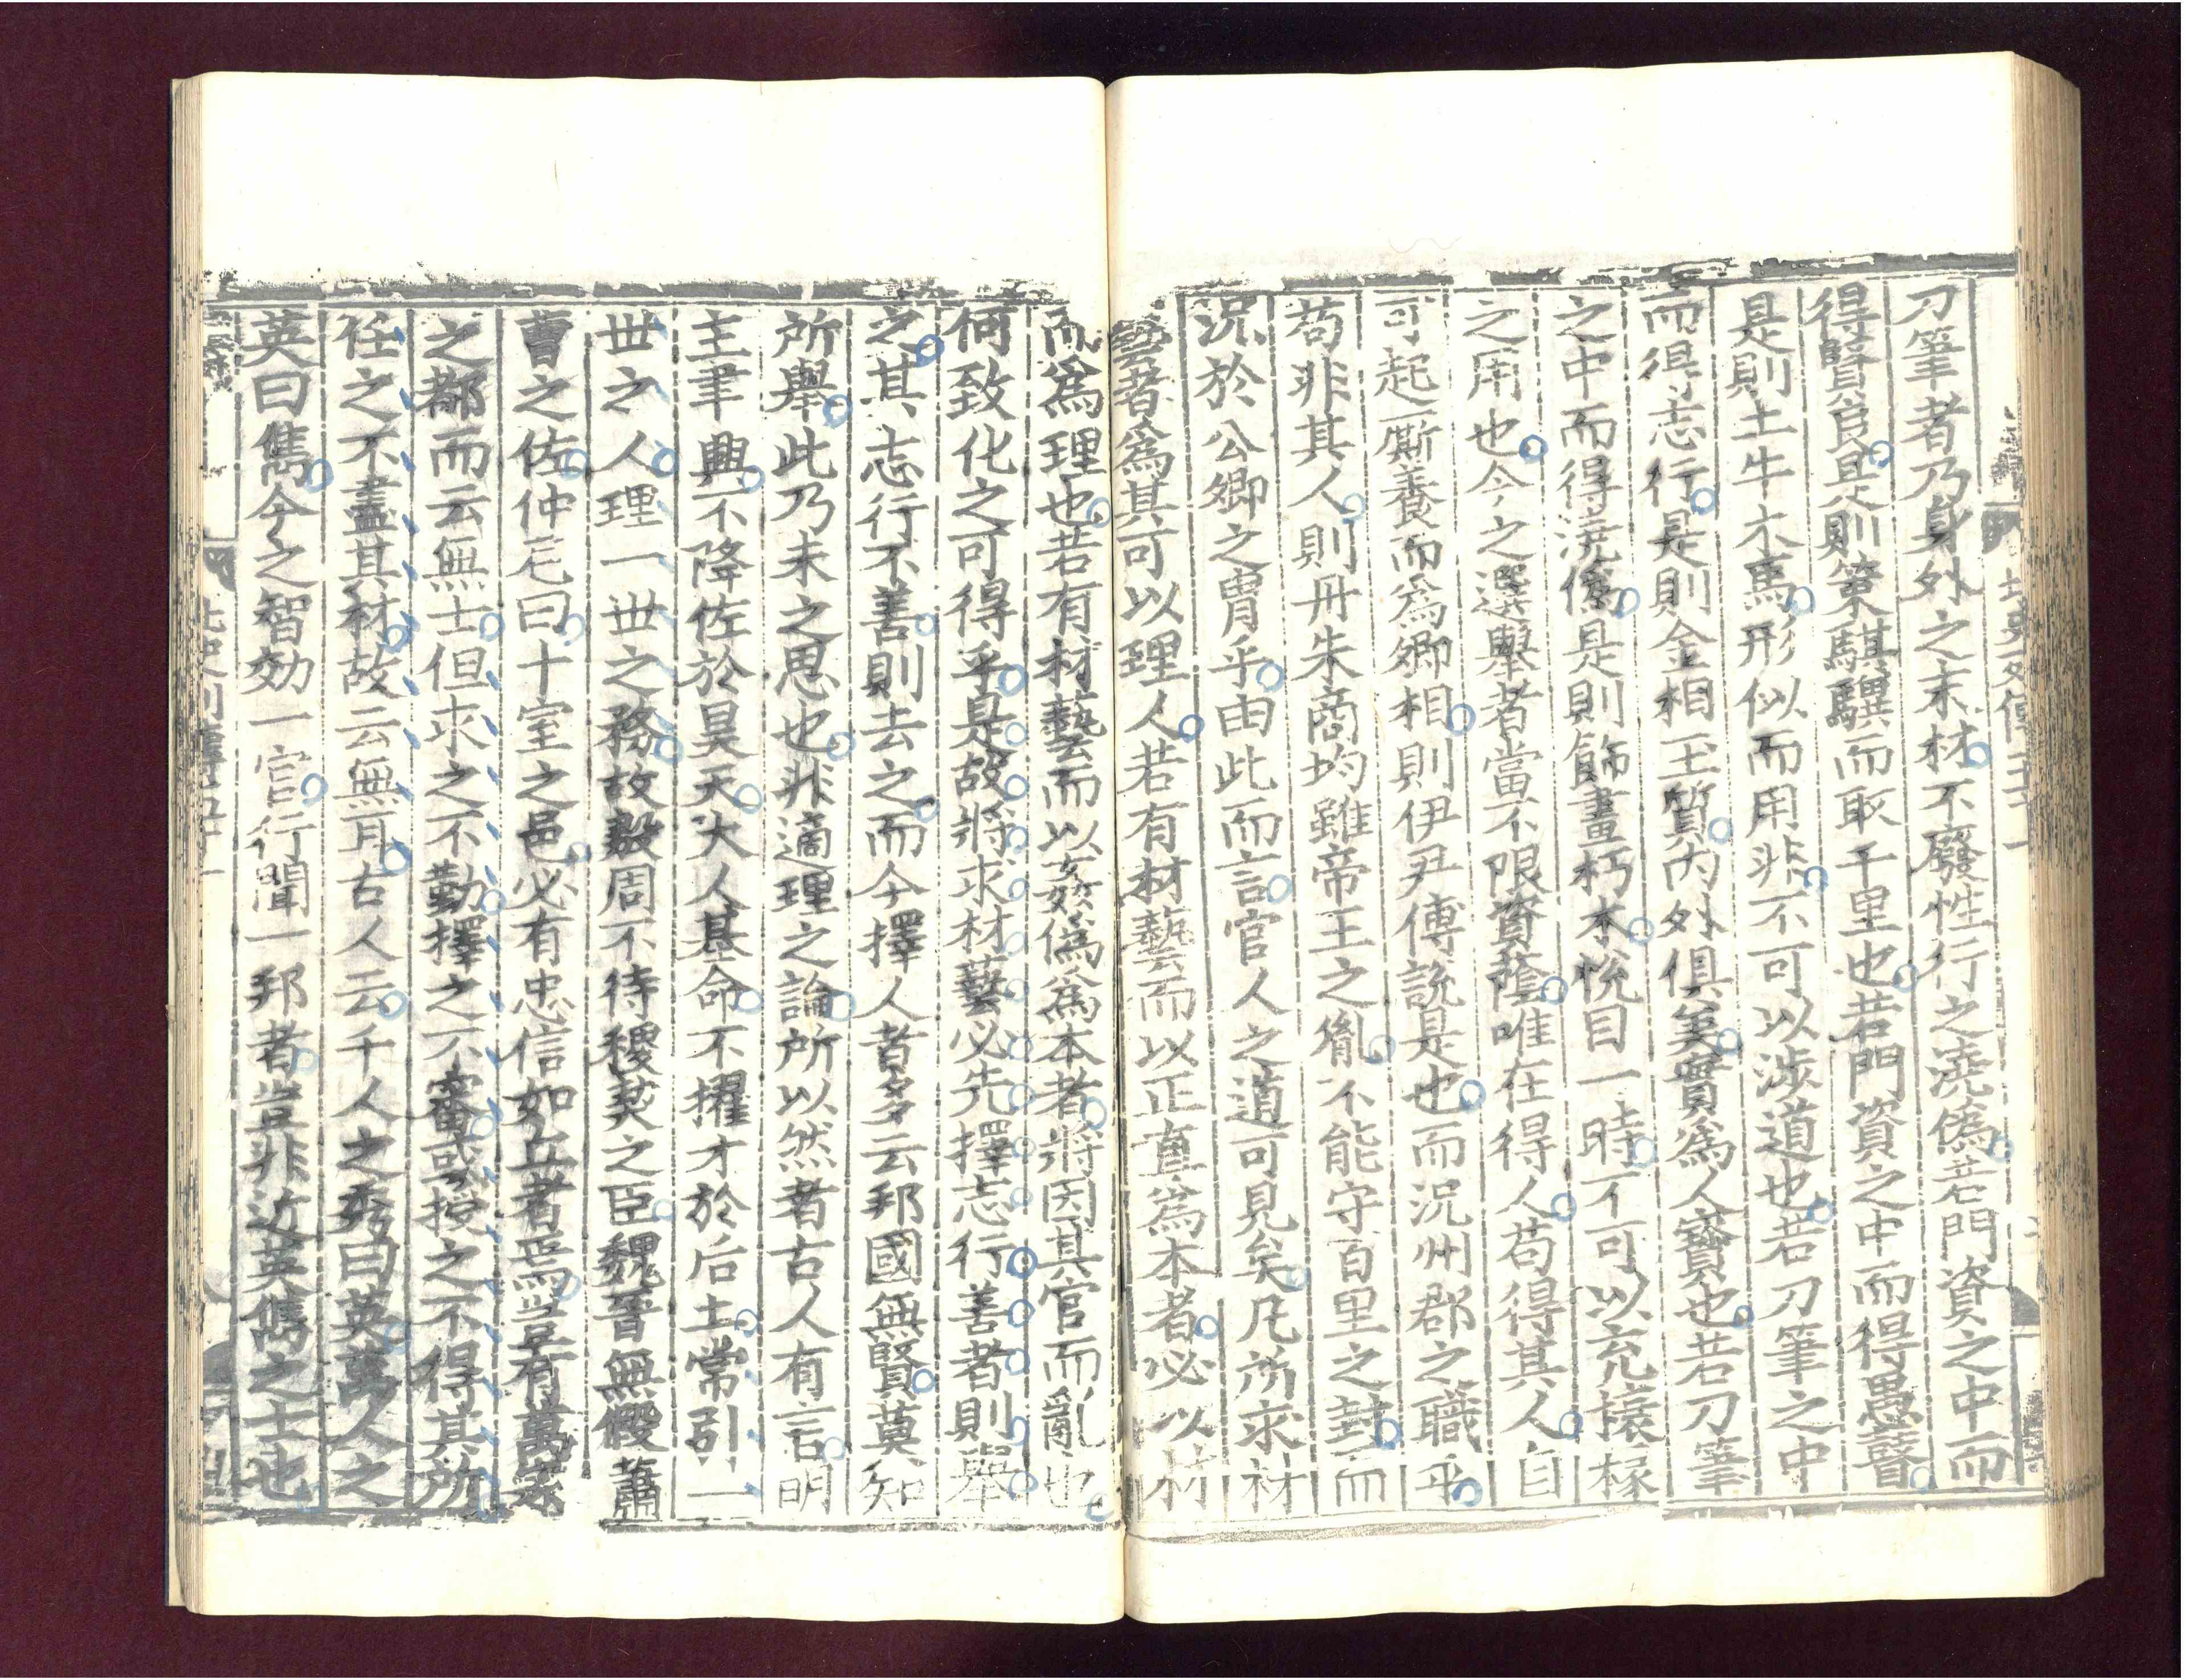 刀筆者乃身外之末材不廢性行之澆僞若門資之中而
得賢良是則策騏驥而取千里也若門資之中而得愚瞽
是則土牛木馬形似而用非不可以涉道也若刀筆之中
而得志行是則金相玉質內外俱美實爲人寶也若刀筆
之中而得澆僞是則飾畫朽木悅目一時不可以充榱椽
之用也今之選舉者當不限資蔭唯在得人苟得其人自
可起厮養而爲卿相則伊尹傅說是也而況州郡之職乎
苟非其人則丹朱商均雖帝王之胤不能守百里之封而
況於公卿之胄乎由此而言官人之道可見矣凡所求材
藝者爲其可以理人若有材藝而以正直爲本者必以材
而爲理也若有材藝而以姦僞爲本者將因其官而亂也
何致化之可得乎是故將求材藝必先擇志行善者則舉
之其志行不善則去之而今擇人者多云邦國無賢莫知
所舉此乃未之思也非適理之論所以然者古人有言明
主聿興不降佐於昊天大人基命不擢才於后土常引一
世之人理一世之務故殷周不待稷契之臣魏晉無假蕭
曹之佐仲尼曰十室之邑必有忠信如丘者焉豈有萬家
之都而云無士但求之不勤擇之不審或授之不得其所
任之不盡其材故云無耳古人云千人之秀曰英萬人之
英曰儁今之智効一官行聞一邦者豈非近英儁之士也